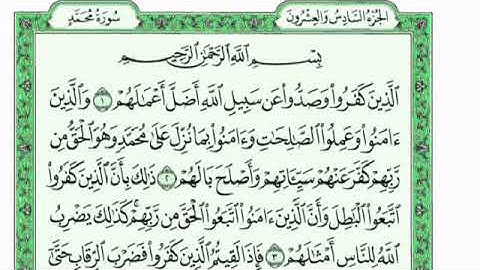 الجزء السادس والعشرون
سورة محمد
بِسْمِ ٱللَّهِ ٱلرَّحْمَٰنِ ٱلرَّحِيمِ
ٱلَّذِينَ كَفَرُوا۟ وَصَدُّوا۟ عَن سَبِيلِ ٱللَّهِ أَضَلَّ أَعْمَٰلَهُمْ ۝١ وَٱلَّذِينَ
ءَامَنُوا۟ وَعَمِلُوا۟ ٱلصَّٰلِحَٰتِ وَءَامَنُوا۟ بِمَا نُزِّلَ عَلَىٰ مُحَمَّدٍ وَهُوَ ٱلْحَقُّ مِن
رَّبِّهِمْ كَفَّرَ عَنْهُمْ سَيِّـَٔاتِهِمْ وَأَصْلَحَ بَالَهُمْ ۝٢ ذَٰلِكَ بِأَنَّ ٱلَّذِينَ كَفَرُوا۟
ٱتَّبَعُوا۟ ٱلْبَٰطِلَ وَأَنَّ ٱلَّذِينَ ءَامَنُوا۟ ٱتَّبَعُوا۟ ٱلْحَقَّ مِن رَّبِّهِمْ ۚ كَذَٰلِكَ يَضْرِبُ
ٱللَّهُ لِلنَّاسِ أَمْثَٰلَهُمْ ۝٣ فَإِذَا لَقِيتُمُ ٱلَّذِينَ كَفَرُوا۟ فَضَرْبَ ٱلرِّقَابِ حَتَّىٰٓ